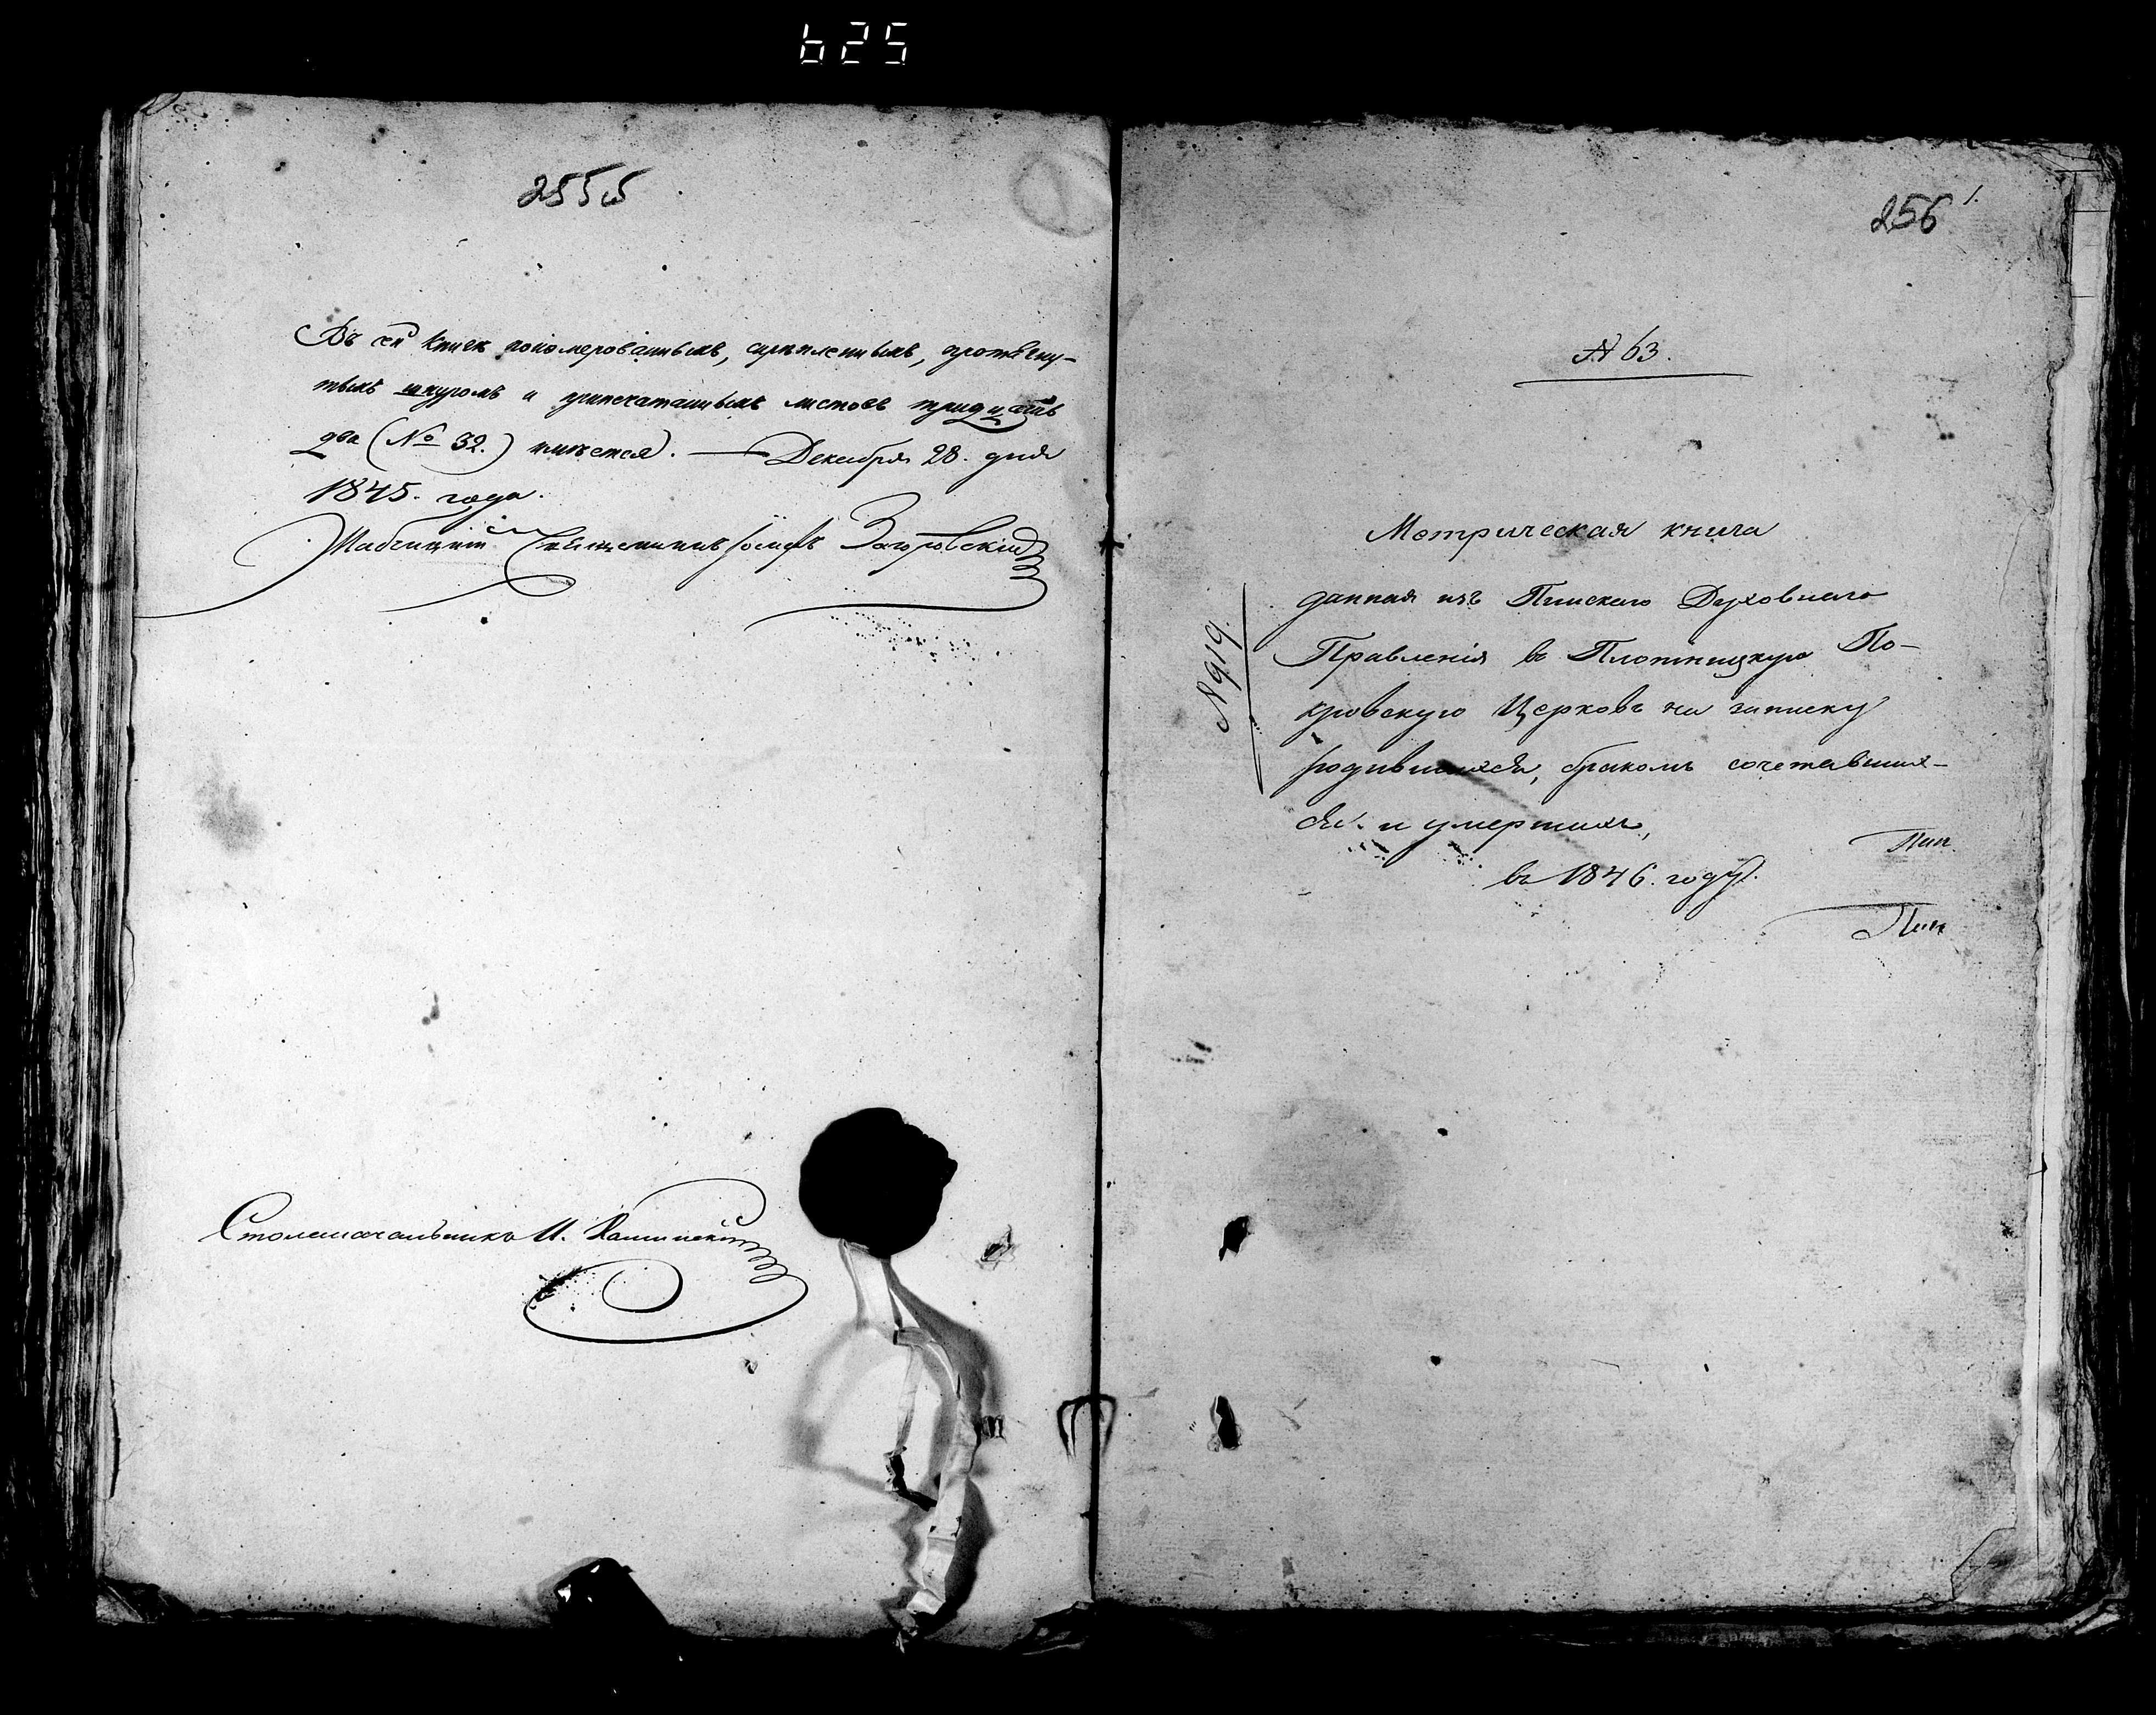 625
255б
Въ сей книгѣ пономерованныхъ, скрѣпленныхъ, протѣну-
тыхъ шнуромъ и припечатанныхъ листовъ тридцать
два (№ 32.) имѣется. — Декабря 28. дня
1845. года.
Священникъ Іосифъ Загоровскій
Столоначальникъ И.
256 1.
№ 63.
Метрическая книга
данная изъ Пинскаго Духовнаго
Правленія въ Плотницкую По-
кровскую Церковь на записку
родившихся, бракомъ сочетавших-
ся и умершихъ,
въ 1846. году.
№ 919.
Пин.
Пин